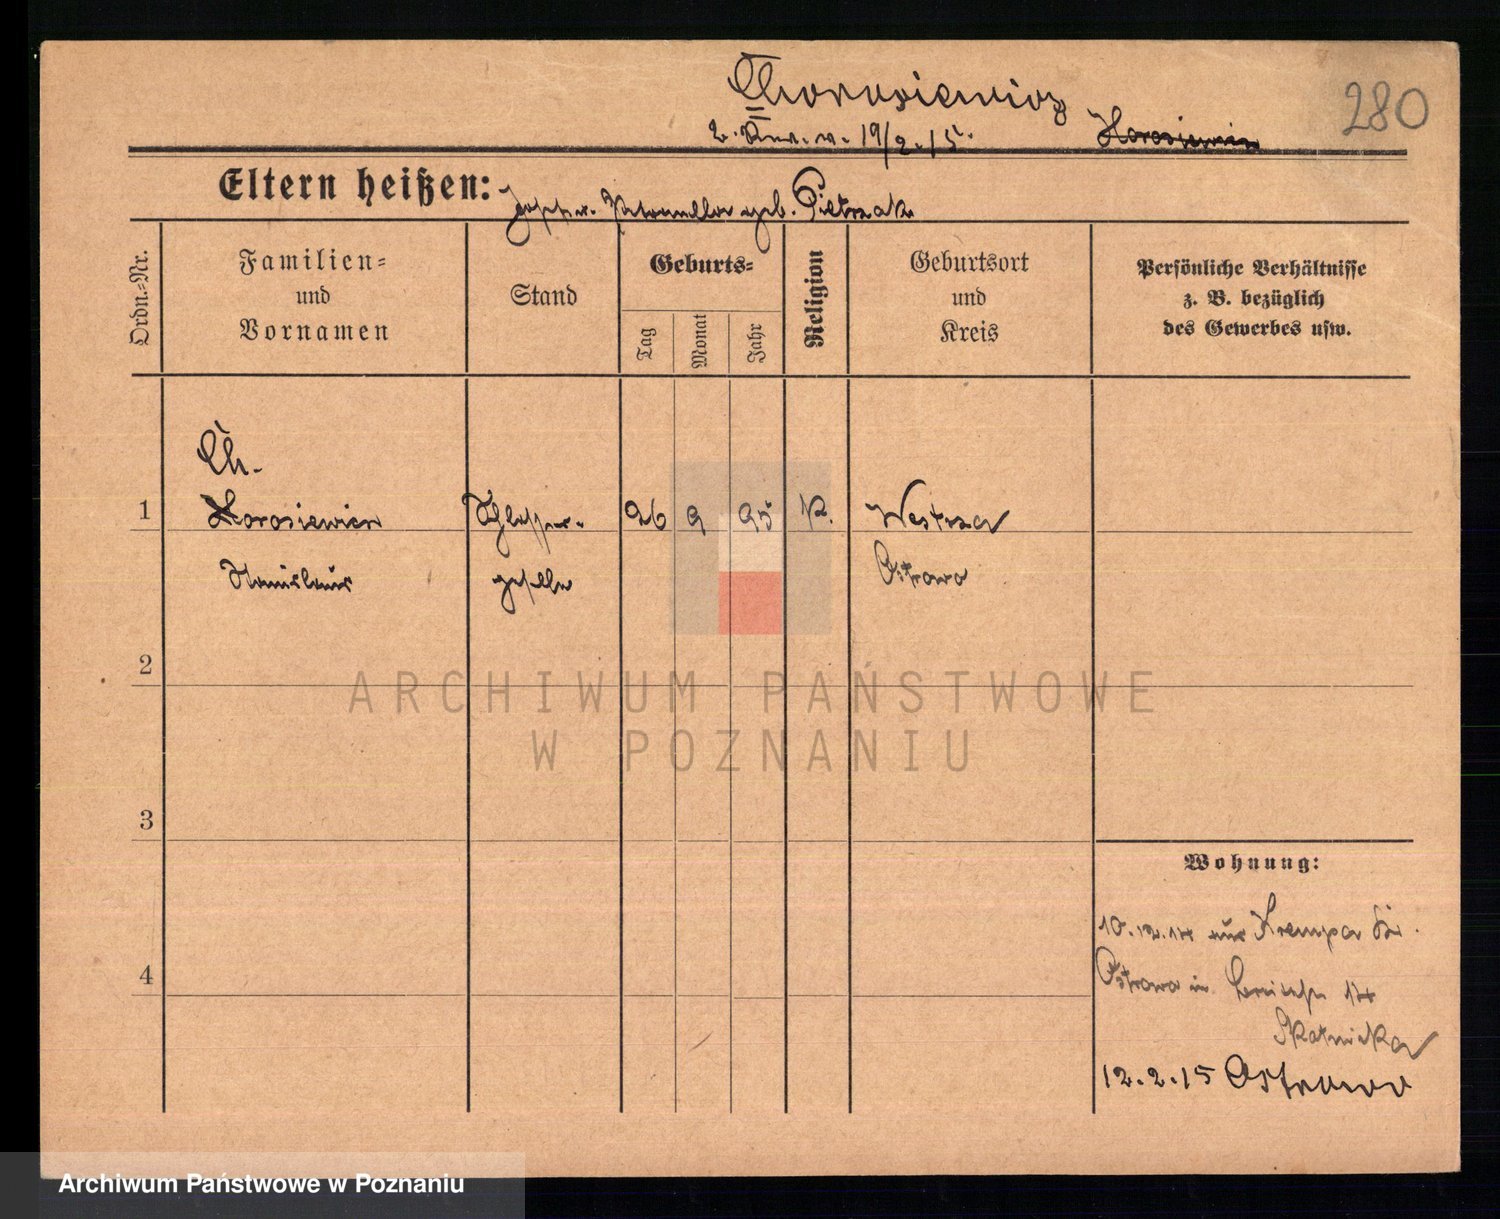 Chorosiewicz
280
z. Anz. v. 19/2.15.
Horosiewicz
Eltern heißen: Josef u. Petronella geb. Pietrzak
Ordn.-Nr.
Familien-
und
Vornamen
Stand
Geburts-
Tag
Monat
Jahr
Religion
Geburtsort
und
Kreis
Persönliche Verhältnisse
z. B. bezüglich
des Gewerbes usw.
Ch.
1 Horosiewicz Schlosser- 26 9 95 K. Westrza
Stanislaus geselle Ostrowo
2
ARCHIWUM PAŃSTWOWE
W POZNANIU
3
Wohnung:
10.12.14 aus Krempa
4
Ostrowo in 14
Skatnicka
12.2.15 Ostrowo
Archiwum Państwowe w Poznaniu